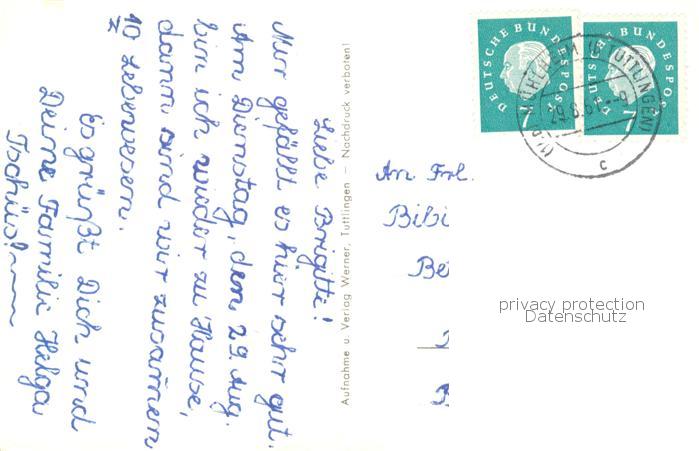 Liebe Brigitte!
Mir gefällt es hier sehr gut.
Am Dienstag, den 29. Aug.
bin ich wieder zu Hause,
dann sind wir zusammen
10 Lebewesen.
Es grüßt Dich und
Deine Familie Helga
Tschüs!
Aufnahme u. Verlag Werner, Tuttlingen — Nachdruck verboten!
DEUTSCHE BUNDESPOST
7
DEUTSCHE BUNDESPOST
7
MÜHLHEIM (TUTTLINGEN)
29.8.61
c
An Frl.
privacy protection
Datenschutz